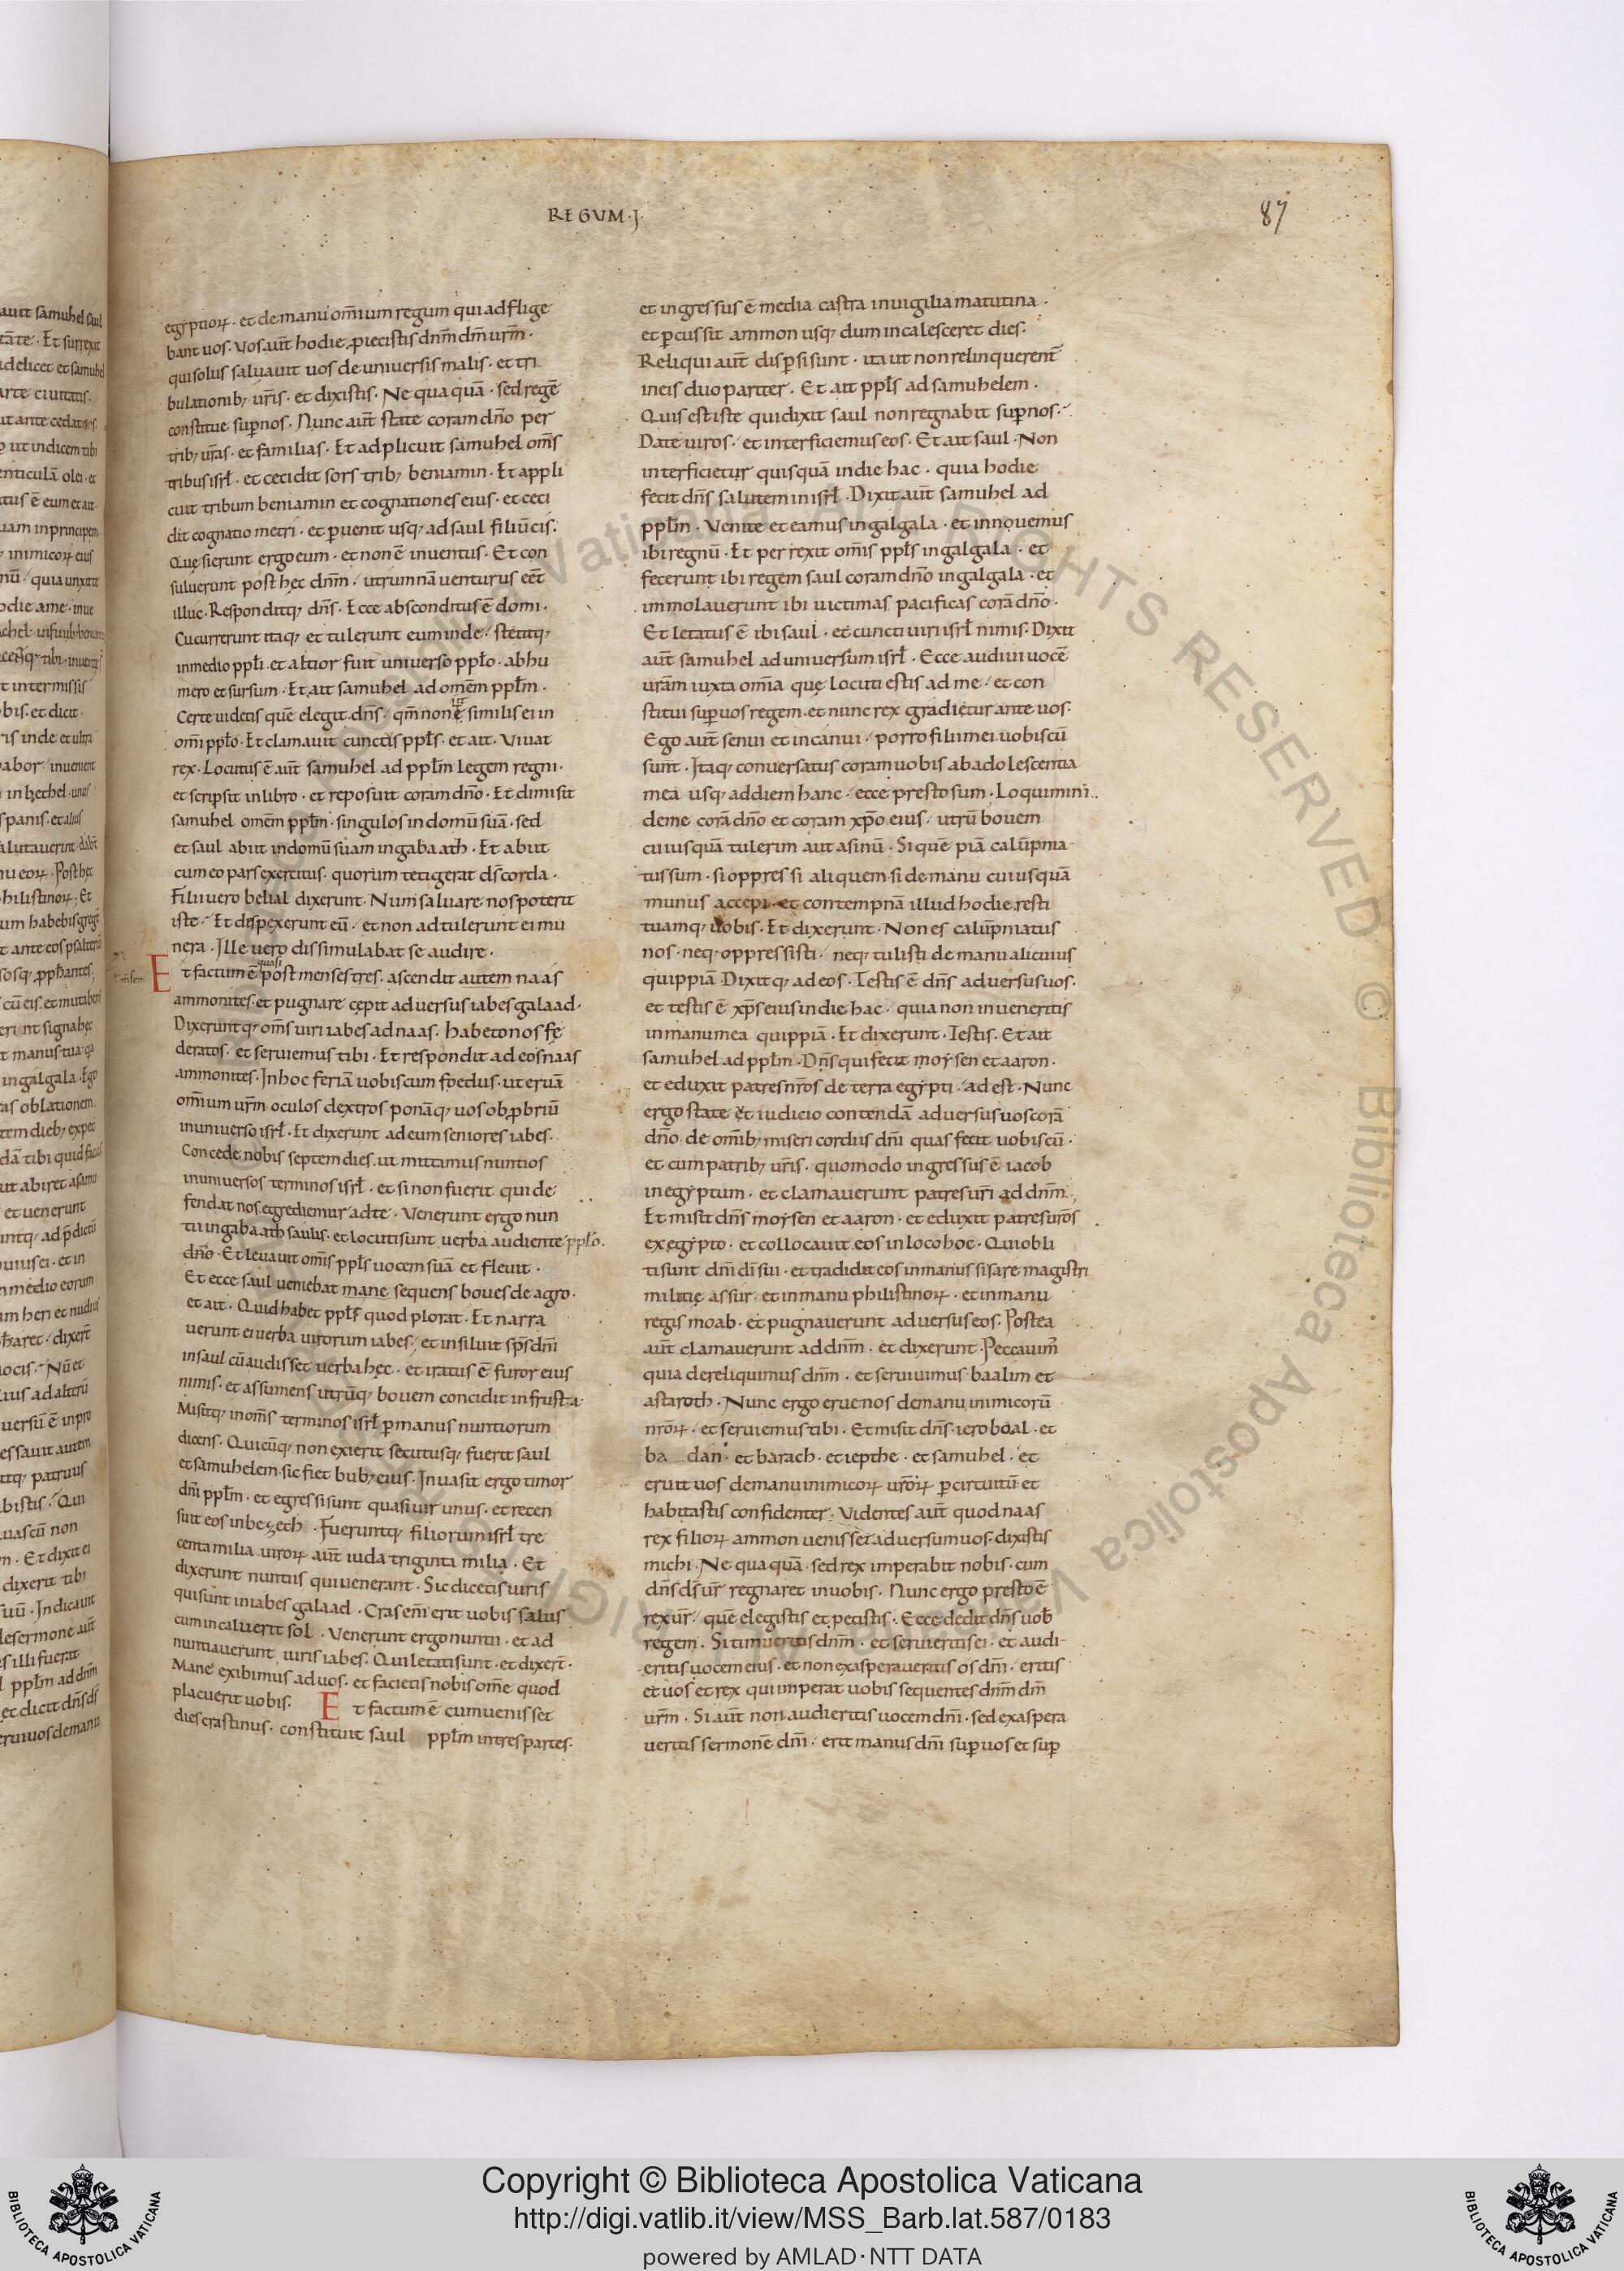 REGUM·J·
87
egẏptioꝝ· et de manu om̄ium regum qui adflige
bant uos· Uos aūt hodie ꝓiecistis dn̄m dm̄ ur̄m·
qui solus saluauit uos de uniuersis malis· et tri
bulationib; ur̄is· et dixistis· Ne qua quā· sed regē
constitue suꝑ nos· Nunc aūt state coram dn̄o per
trib; ur̄as· et familias· Et adplicuit samuhel om̄s
tribus isrł· et cecidit sors trib; beniamin· Et appli
cuit tribum beniamin et cognationes eius· et ceci
dit cognatio metri· et ꝑuenit usq; ad saul filiū cis·
Quęsierunt ergo eum· et non ē inuentus· Et con
suluerunt post hęc dn̄m· utrumnā uenturus eēt
illuc· Responditq; dn̄s· Ecce absconditus ē domi·
Cucurrerunt itaq; et tulerunt eum inde· stetitq;
in medio ppłi et altior fuit uniuerso ppło· ab hu
mero et sursum· Et ait samuhel ad omēm ppłm·
Certe uidetis quē elegit dn̄s· qm̄ non ē similis ei in
om̄i ppło· Et clamauit cunctus ppłs· et ait· Viuat
rex· Locutus ē aūt samuhel ad ppłm legem regni·
et scripsit in libro· et reposuit coram dn̄o· Et dimisit
samuhel omēm ppłm· singulos in domū suā· sed
et saul abiit in domū suam in gabaath· Et abiit
cum eo pars exercitus· quorum tetigerat ds̄ corda·
Filii uero belial dixerunt· Num saluare nos poterit
iste· Et dispexerunt eū· et non adtulerunt ei mu
nera· Jlle uero dissimulabat se audire·
Et factum ē quasi post menses tres· ascendit autem naas
ammonites· et pugnare cępit aduersus iabes galaad·
Dixeruntq; om̄s uiri iabes ad naas· habeto nos fę
deratos· et seruiemus tibi· Et respondit ad eos naas
ammonites· Jn hoc feriā uobiscum foedus· ut eruā
om̄ium ur̄m oculos dextros· ponāq; uos obꝓbriū
in uniuerso isrł· Et dixerunt ad eum seniores iabes·
Concede nobis septem dies· ut mittamus nuntios
in uniuersos terminos isrł· et si non fuerit qui de
fendat nos· egrediemur ad te· Venerunt ergo nun
tii in gabaath saulis· et locuti sunt uerba audiente ppło·
dn̄o· Et leuauit om̄is ppłs uocem suā et fleuit·
Et ecce saul ueniebat mane sequens boues de agro·
et ait· Quid habet ppłs quod plorat· Et narra
uerunt ei uerba uirorum iabes· et insiluit sp̄s dn̄i
in saul cū audisset uerba hęc· et iratus ē furor eius
nimis· et assumens utrūq; bouem concidit in frusta·
Misitq; in om̄s terminos isrł ꝑ manus nuntiorum
dicens· Quicūq; non exierit secutusq; fuerit saul
et samuhelem· sic fiet bub; eius· Jnuasit ergo timor
dn̄i ppłm· et egressi sunt quasi uir unus· et recen
suit eos in bezech· Fueruntq; filiorum isrł tre
centa milia· uiroꝝ aūt iuda triginta milia· Et
dixerunt nuntiis qui uenerant· Sic dicetis uiris
qui sunt in iabes galaad· Cras en̄i erit uobis salus
cum incaluerit sol· Venerunt ergo nuntii· et ad
nuntiauerunt uiris iabes· Qui letati sunt· et dixert̄·
Mane exibimus ad uos· et facietis nobis om̄e quod
placuerit uobis· Et factum ē cum uenisset
dies crastinus· constituit saul ppłm in tres partes·
et ingressus ē media castra in uigilia matutina·
et ꝑcussit ammon usq; dum incalesceret dies·
Reliqui aūt disꝑsi sunt· ita ut non relinquerent̄
in eis duo pariter· Et ait ppłs ad samuhelem·
Quis est iste qui dixit saul non regnabit suꝑ nos·
Date uiros· et interficiemus eos· Et ait saul· Non
interficietur quisquā in die hac· quia hodie
fecit dn̄s salutem in isrł· Dixit aūt samuhel ad
ppłm· Venite et eamus in galgala· et innouemus
ibi regnū· Et perrexit om̄is ppłs in galgala· et
fecerunt ibi regem saul coram dn̄o in galgala· et
immolauerunt ibi uictimas pacificas corā dn̄o·
Et letatus ē ibi saul· et cuncti uiri isrł nimis· Dixit
aūt samuhel ad uniuersum isrł· Ecce audiui uocē
ur̄am iuxta om̄ia quę locuti estis ad me· et con
stitui suꝑ uos regem· et nunc rex gradietur ante uos·
Ego aūt senui et incanui· porro filii mei uobiscū
sunt· Jtaq; conuersatus coram uobis ab adolescentia
mea usq; ad diem hanc· ecce presto sum· Loquimini
de me corā dn̄o et coram xp̄o eius· utrū bouem
cuiusquā tulerim aut asinū· Si quē piā calūpnia
tus sum· si oppressi aliquem· si de manu cuiusquā
munus accepi· et contempnā illud hodie· resti
tuamq; uobis· Et dixerunt· Non es calūpniatus
nos· neq; oppressisti· neq; tulisti de manu alicuius
quippiā· Dixitq; ad eos· Testis ē dn̄s aduersus uos·
et testis ē xp̄s eius in die hac· quia non inueneritis
in manu mea quippiā· Et dixerunt· Testis· Et ait
samuhel ad ppłm· Dn̄s qui fecit moẏsen et aaron·
et eduxit patres nr̄os de terra egẏpti· adest· Nunc
ergo state et iudicio contendā aduersus uos corā
dn̄o de om̄ib; misericordiis dn̄i quas fecit uobiscū·
et cum patrib; ur̄is· quomodo ingressus ē iacob
in egẏptum· et clamauerunt patres ur̄i ad dn̄m·
Et misit dn̄s moẏsen et aaron· et eduxit patres ur̄os
ex egẏpto· et collocauit eos in loco hoc· Qui obli
ti sunt dn̄i dī sui· et tradidit eos in manus sisare magistri
militię assur· et in manu philistinoꝝ· et in manu
regis moab· et pugnauerunt aduersus eos· Postea
aūt clamauerunt ad dn̄m· et dixerunt· Peccauim᷒
quia dereliquimus dn̄m· et seruiuimus baalim et
astaroth· Nunc ergo erue nos de manu inimicorū
nr̄oꝝ· et seruiemus tibi· Et misit dn̄s· ieroboal· et
ba dan· et barach· et iepthe· et samuhel· et
eruit uos de manu inimicoꝝ ur̄oꝝ ꝑ circuitū et
habitastis confidenter· Videntes aūt quod naas
rex filioꝝ ammon uenisset aduersum uos· dixistis
michi· Ne qua quā· sed rex imperabit nobis· cum
dn̄s ds̄ ur̄ regnaret in uobis· Nunc ergo presto ē
rex ur̄· quē elegistis et petistis· Ecce dedit dn̄s uob̄
regem· Si timueritis dn̄m· et seruieritis ei· et audi
eritis uocem eius· et non exasperaueritis os dn̄i· eritis
et uos et rex qui imperat uobis sequentes dn̄m dm̄
ur̄m· Si aūt non audieritis uocem dn̄i· sed exaspera
ueritis sermonē dn̄i· erit manus dn̄i suꝑ uos et suꝑ
Copyright © Biblioteca Apostolica Vaticana
http://digi.vatlib.it/view/MSS_Barb.lat.587/0183
powered by AMLAD·NTT DATA
BIBLIOTECA APOSTOLICA VATICANA
BIBLIOTECA APOSTOLICA VATICANA